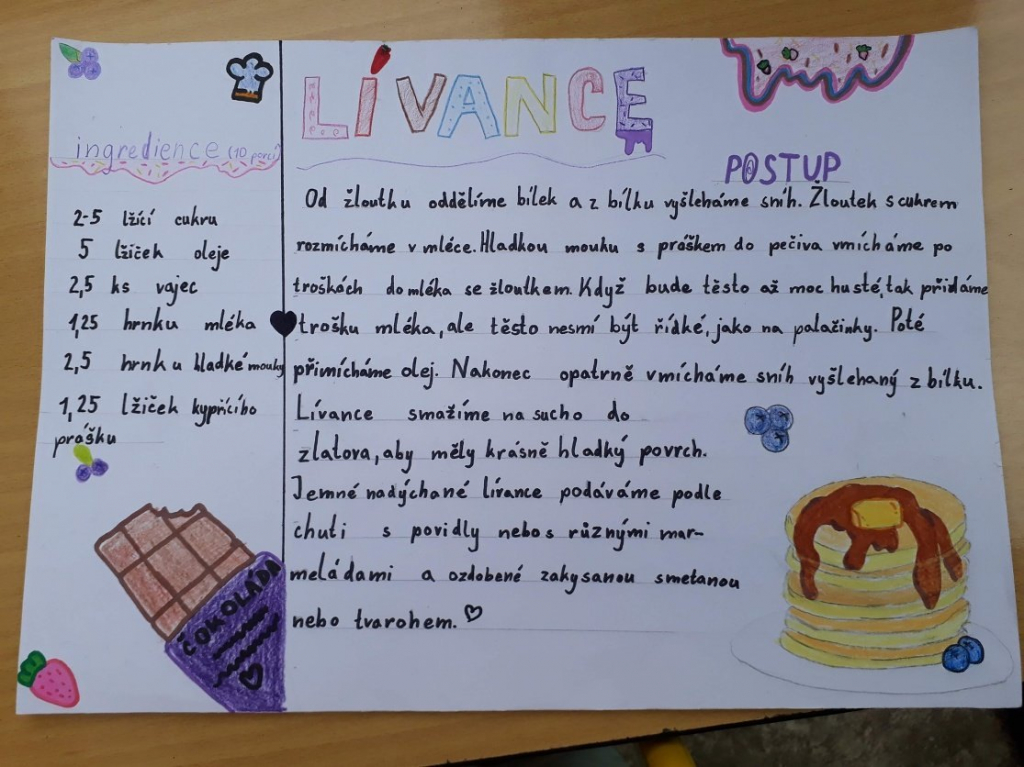 LÍVANCE
ingredience (10 porcí)
2-5 lžící cukru
5 lžiček oleje
2,5 ks vajec
1,25 hrnku mléka
2,5 hrnku hladké mouky
1,25 lžiček kypřícího
prášku
ČOKOLÁDA
POSTUP
Od žloutku oddělíme bílek a z bílku vyšleháme sníh. Žloutek s cukrem
rozmícháme v mléce. Hladkou mouku s práškem do pečiva vmícháme po
troškách do mléka se žloutkem. Když bude těsto až moc husté, tak přidáme
trošku mléka, ale těsto nesmí být řídké, jako na palačinky. Poté
přimícháme olej. Nakonec opatrně vmícháme sníh vyšlehaný z bílku.
Lívance smažíme na sucho do
zlatova, aby měly krásně hladký povrch.
Jemné nadýchané lívance podáváme podle
chuti s povidly nebo s různými mar-
meládami a ozdobené zakysanou smetanou
nebo tvarohem.